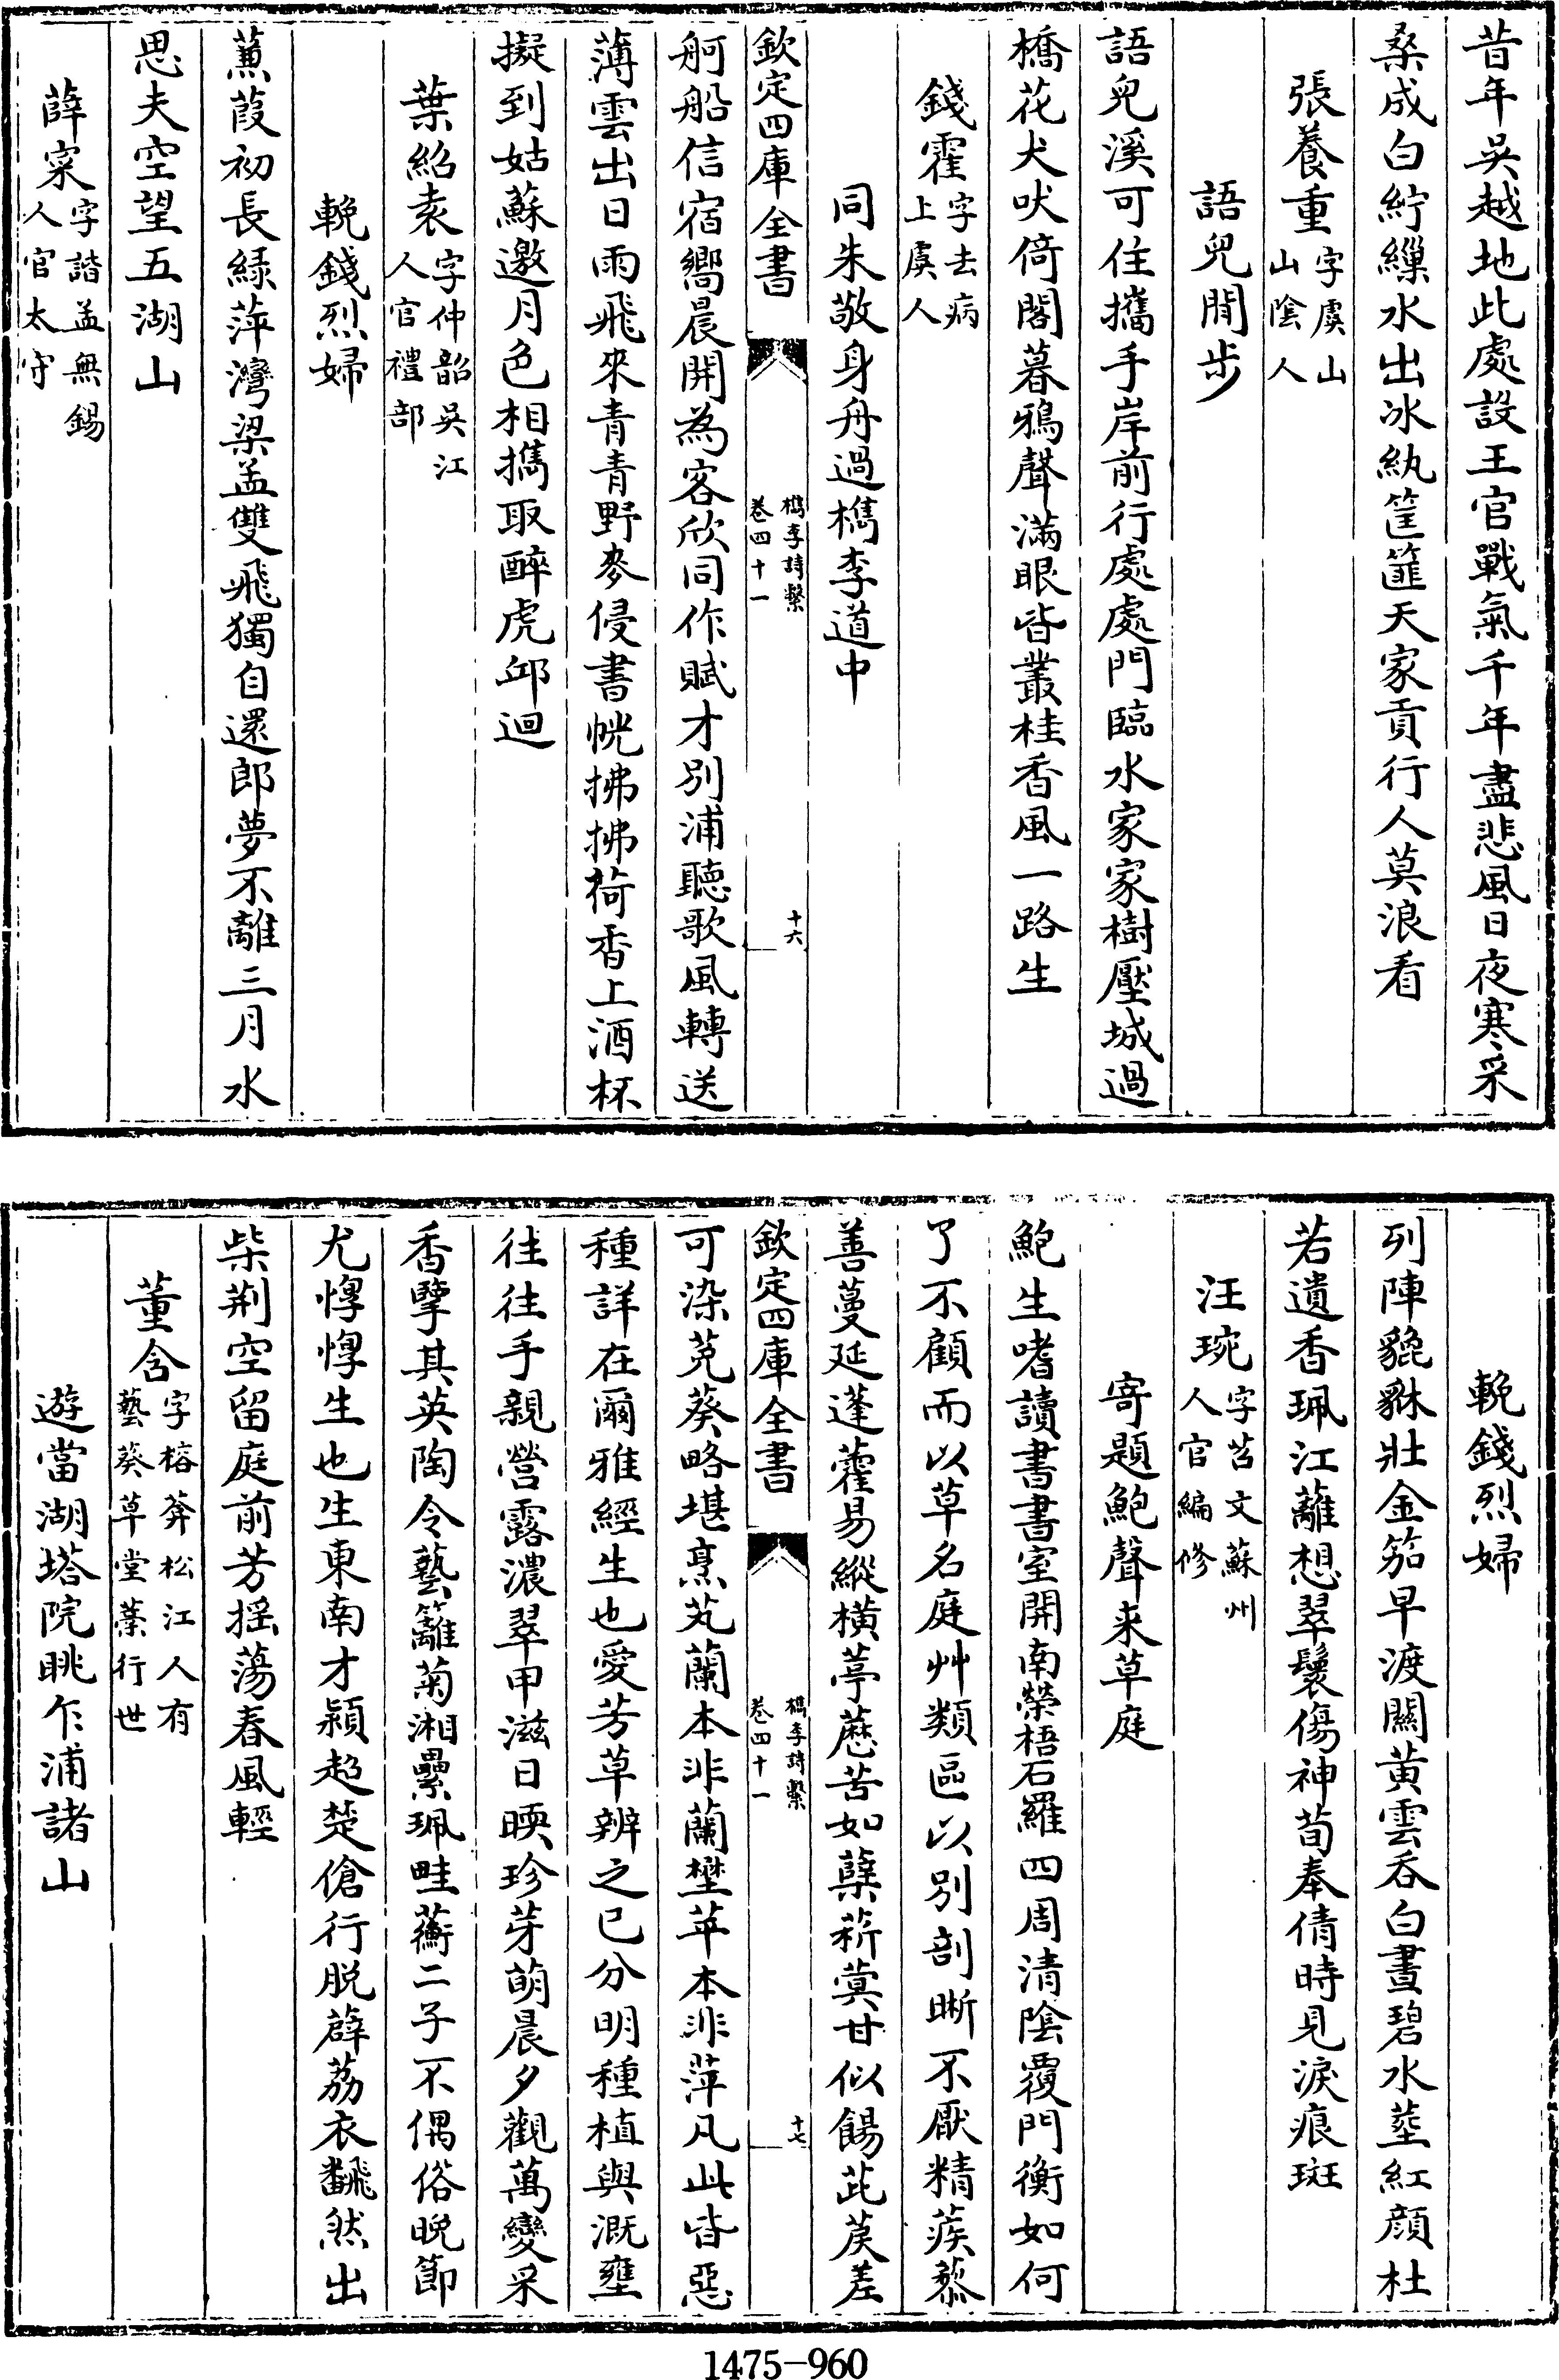 昔年吳越地此處設王官戰氣千年盡悲風日夜寒采
桑成白紵繅水出冰紈筐篚天家貢行人莫浪看
張養重字虞山山陰人
語兒閒步
語兒溪可住攜手岸前行處處門臨水家家樹壓城過
橋花犬吠倚閣暮鴉聲滿眼皆叢桂香風一路生
錢霍字去病上虞人
同朱敬身舟過檇李道中
欽定四庫全書
檇李詩繫
卷四十一
十六
舸船信宿嚮晨開為客欣同作賦才別浦聽歌風轉送
薄雲出日雨飛來青青野麥侵書幌拂拂荷香上酒杯
擬到姑蘇邀月色相攜取醉虎邱迴
葉紹袁字仲韶吳江人官禮部
輓錢烈婦
蒹葭初長綠萍灣梁孟雙飛獨自還郎夢不離三月水
思夫空望五湖山
薛寀字諧孟無錫人官太守
輓錢烈婦
列陣貔貅壯金笳早渡關黃雲吞白晝碧水塟紅顏杜
若遺香珮江蘺想翠鬟傷神荀奉倩時見淚痕斑
汪琬字苕文蘇州人官編修
寄題鮑聲来草庭
鮑生嗜讀書書室開南榮梧石羅四周清陰覆門衡如何
了不顧而以草名庭艸類區以別剖晰不厭精蒺藜
善蔓延蓬藋易縱橫葶藶苦如蘗菥蓂甘似餳茈莀差
可染菟葵略堪烹芄蘭本非蘭壄苹本非萍凡此皆惡
種詳在爾雅經生也愛芳草辨之已分明種植與溉壅
往往手親營露濃翠甲滋日暎珍芽萌晨夕觀萬變采
香擘其英陶令藝籬菊湘纍珮畦蘅二子不偶俗晚節
尤惸惸生也生東南才穎超楚傖行脱薜荔衣飜然出
柴荆空留庭前芳揺蕩春風輕
董含字榕菴松江人有藝葵草堂藁行世
遊當湖塔院眺乍浦諸山
欽定四庫全書
檇李詩繫
卷四十一
十七
1475-960